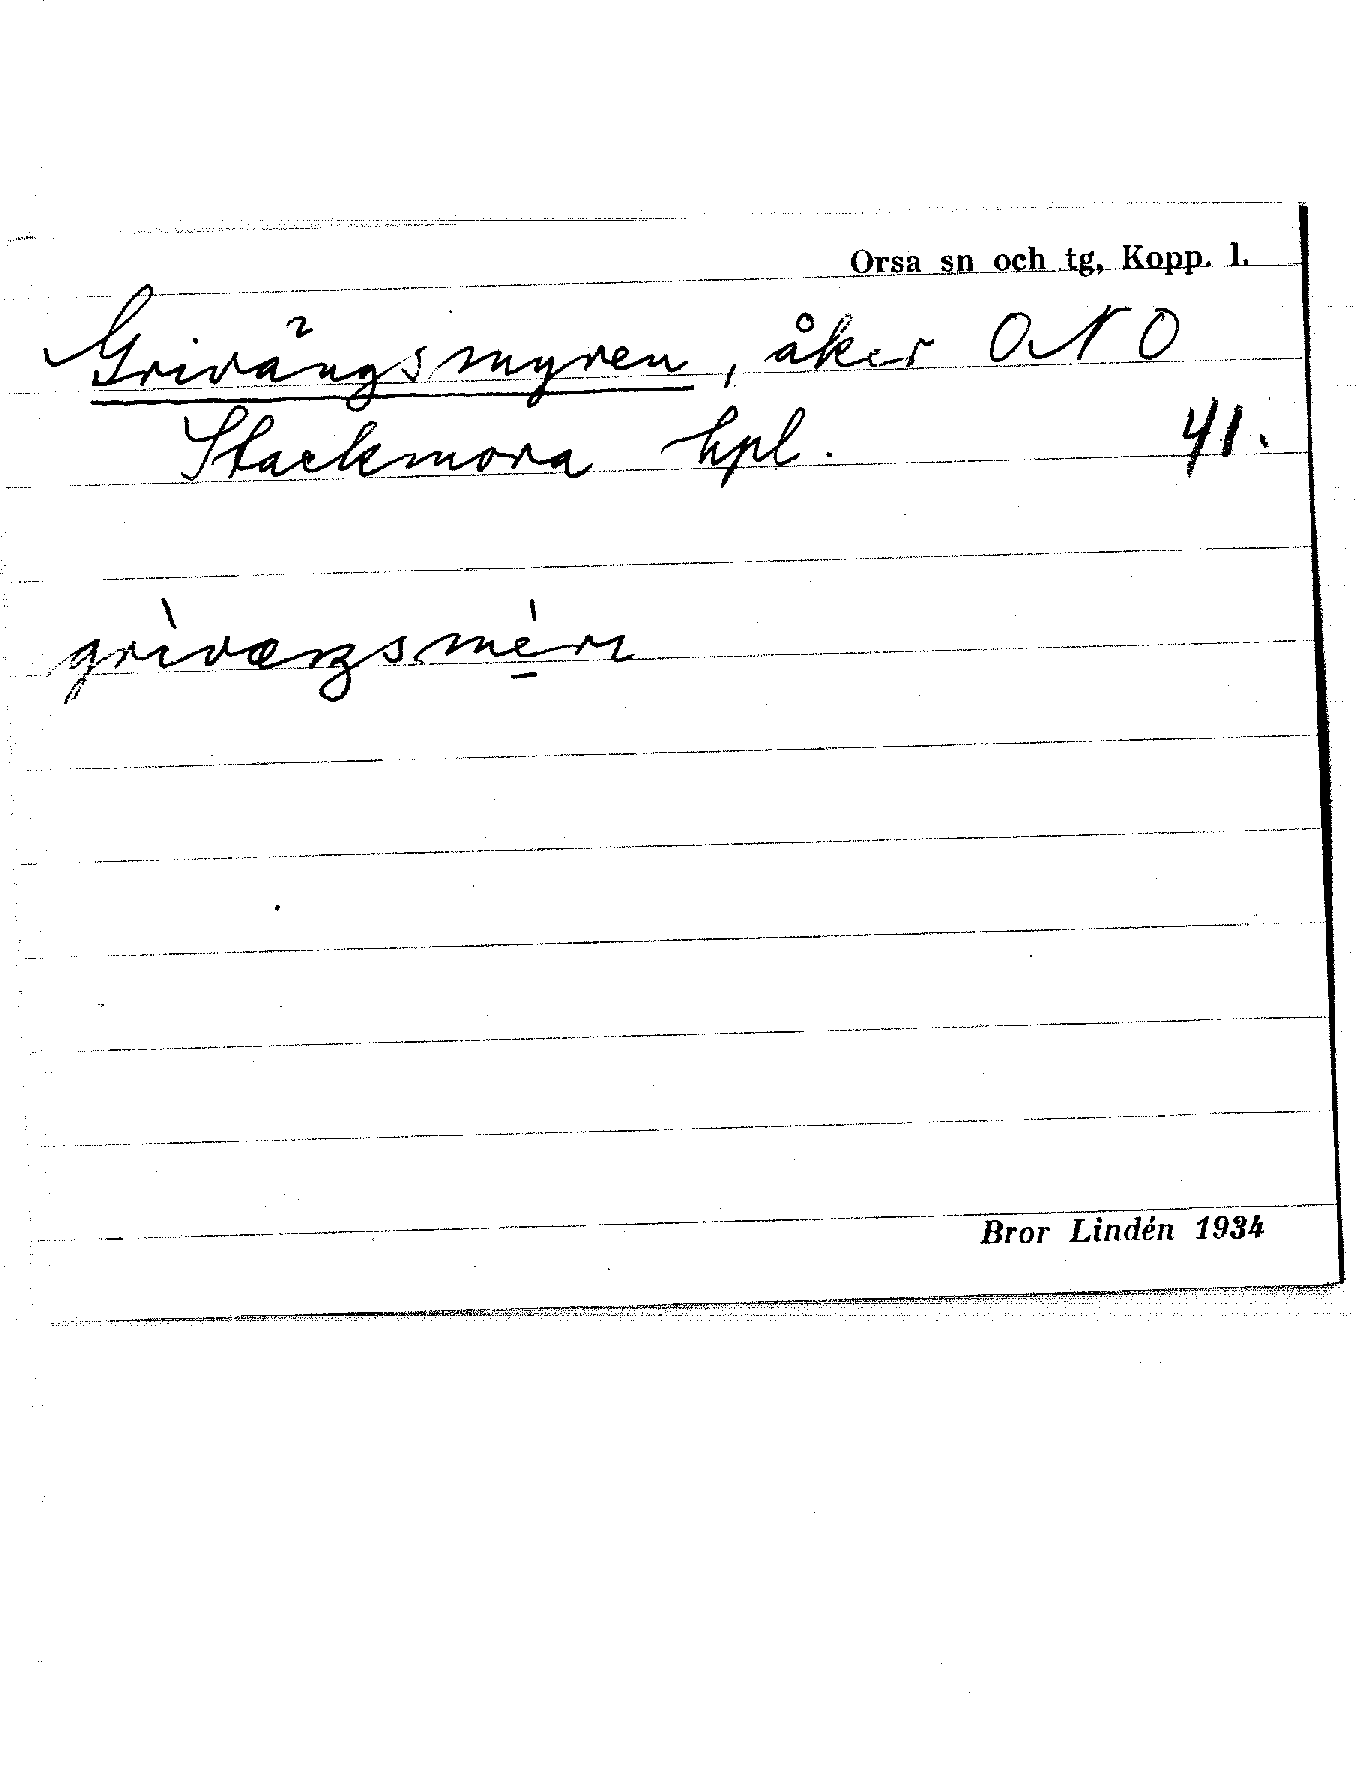 Orsa sn och tg, Kopp. l.
Grivängsmyren, åker ONO
Stackmora hpl. 41.
grìvæŋsmérı
Bror Lindén 1934